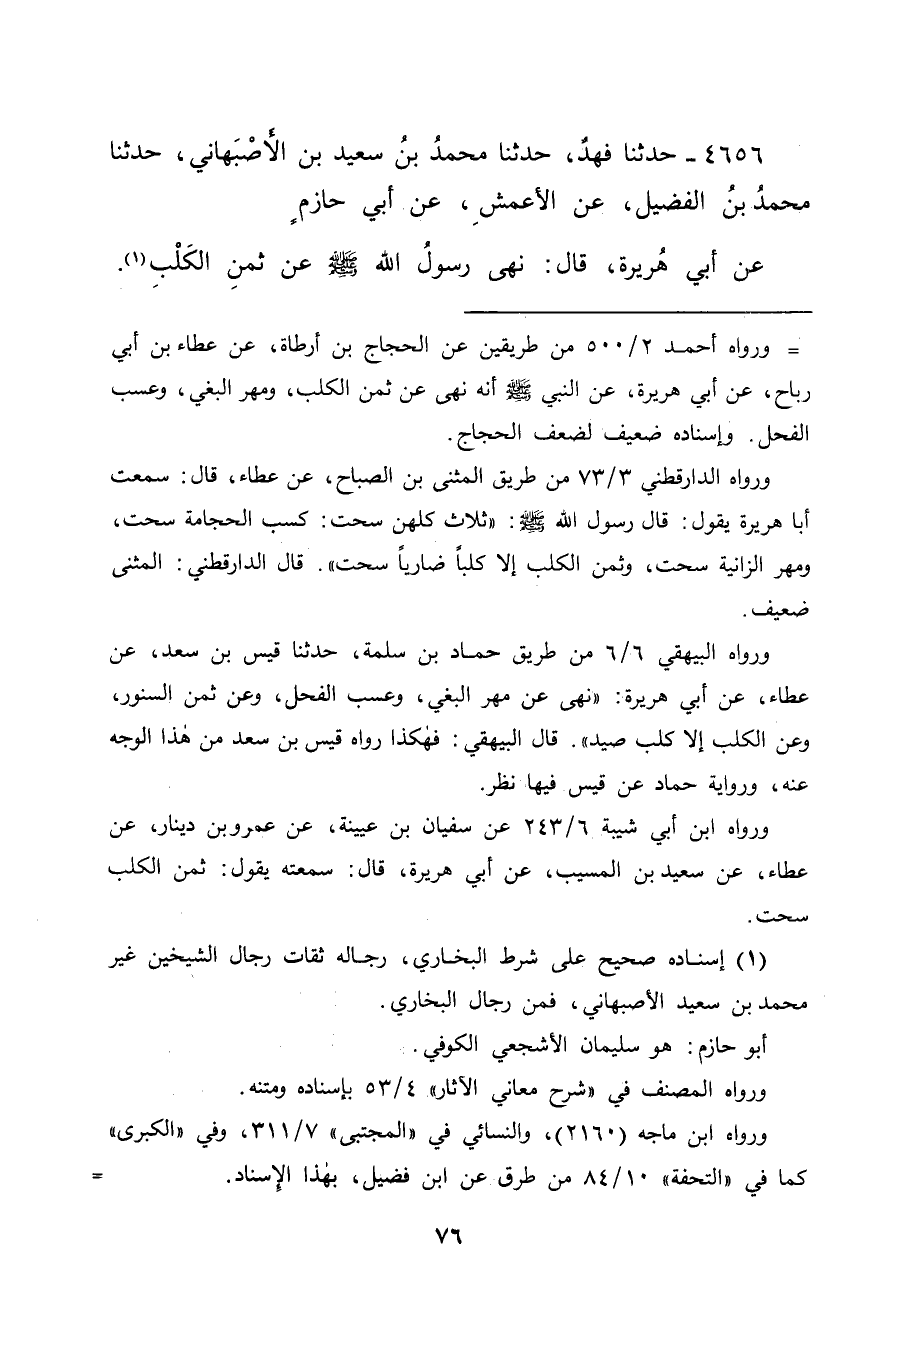 ٤٦٥٦ ـ حدثنا فهدٌ، حدثنا محمدُ بنُ سعيد بن الأَصْبَهاني، حدثنا
محمدُ بنُ الفضيل، عن الأعمشِ، عن أبي حازمٍ
عن أبي هُريرة، قال: نهى رسولُ الله ﷺ عن ثمنِ الكَلْبِ(١).
= ورواه أحمد ٥٠٠/٢ من طريقين عن الحجاج بن أرطاة، عن عطاء بن أبي
رباح، عن أبي هريرة، عن النبي ﷺ أنه نهى عن ثمن الكلب، ومهر البغي، وعسب
الفحل. وإسناده ضعيف لضعف الحجاج.
ورواه الدارقطني ٧٣/٣ من طريق المثنى بن الصباح، عن عطاء، قال: سمعت
أبا هريرة يقول: قال رسول الله ﷺ: «ثلاث كلهن سحت: كسب الحجامة سحت،
ومهر الزانية سحت، وثمن الكلب إلا كلباً ضارياً سحت». قال الدارقطني: المثنى
ضعيف.
ورواه البيهقي ٦/٦ من طريق حماد بن سلمة، حدثنا قيس بن سعد، عن
عطاء، عن أبي هريرة: «نهى عن مهر البغي، وعسب الفحل، وعن ثمن السنور،
وعن الكلب إلا كلب صيد». قال البيهقي: فهٰكذا رواه قيس بن سعد من هٰذا الوجه
عنه، ورواية حماد عن قيس فيها نظر.
ورواه ابن أبي شيبة ٢٤٣/٦ عن سفيان بن عيينة، عن عمرو بن دينار، عن
عطاء، عن سعيد بن المسيب، عن أبي هريرة، قال: سمعته يقول: ثمن الكلب
سحت.
(١) إسناده صحيح على شرط البخاري، رجاله ثقات رجال الشيخين غير
محمد بن سعيد الأصبهاني، فمن رجال البخاري.
أبو حازم: هو سليمان الأشجعي الكوفي.
ورواه المصنف في «شرح معاني الآثار» ٥٣/٤ بإسناده ومتنه.
ورواه ابن ماجه (٢١٦٠)، والنسائي في «المجتبى» ٣١١/٧، وفي «الكبرى»
كما في «التحفة» ٨٤/١٠ من طرق عن ابن فضيل، بهٰذا الإسناد. =
٧٦